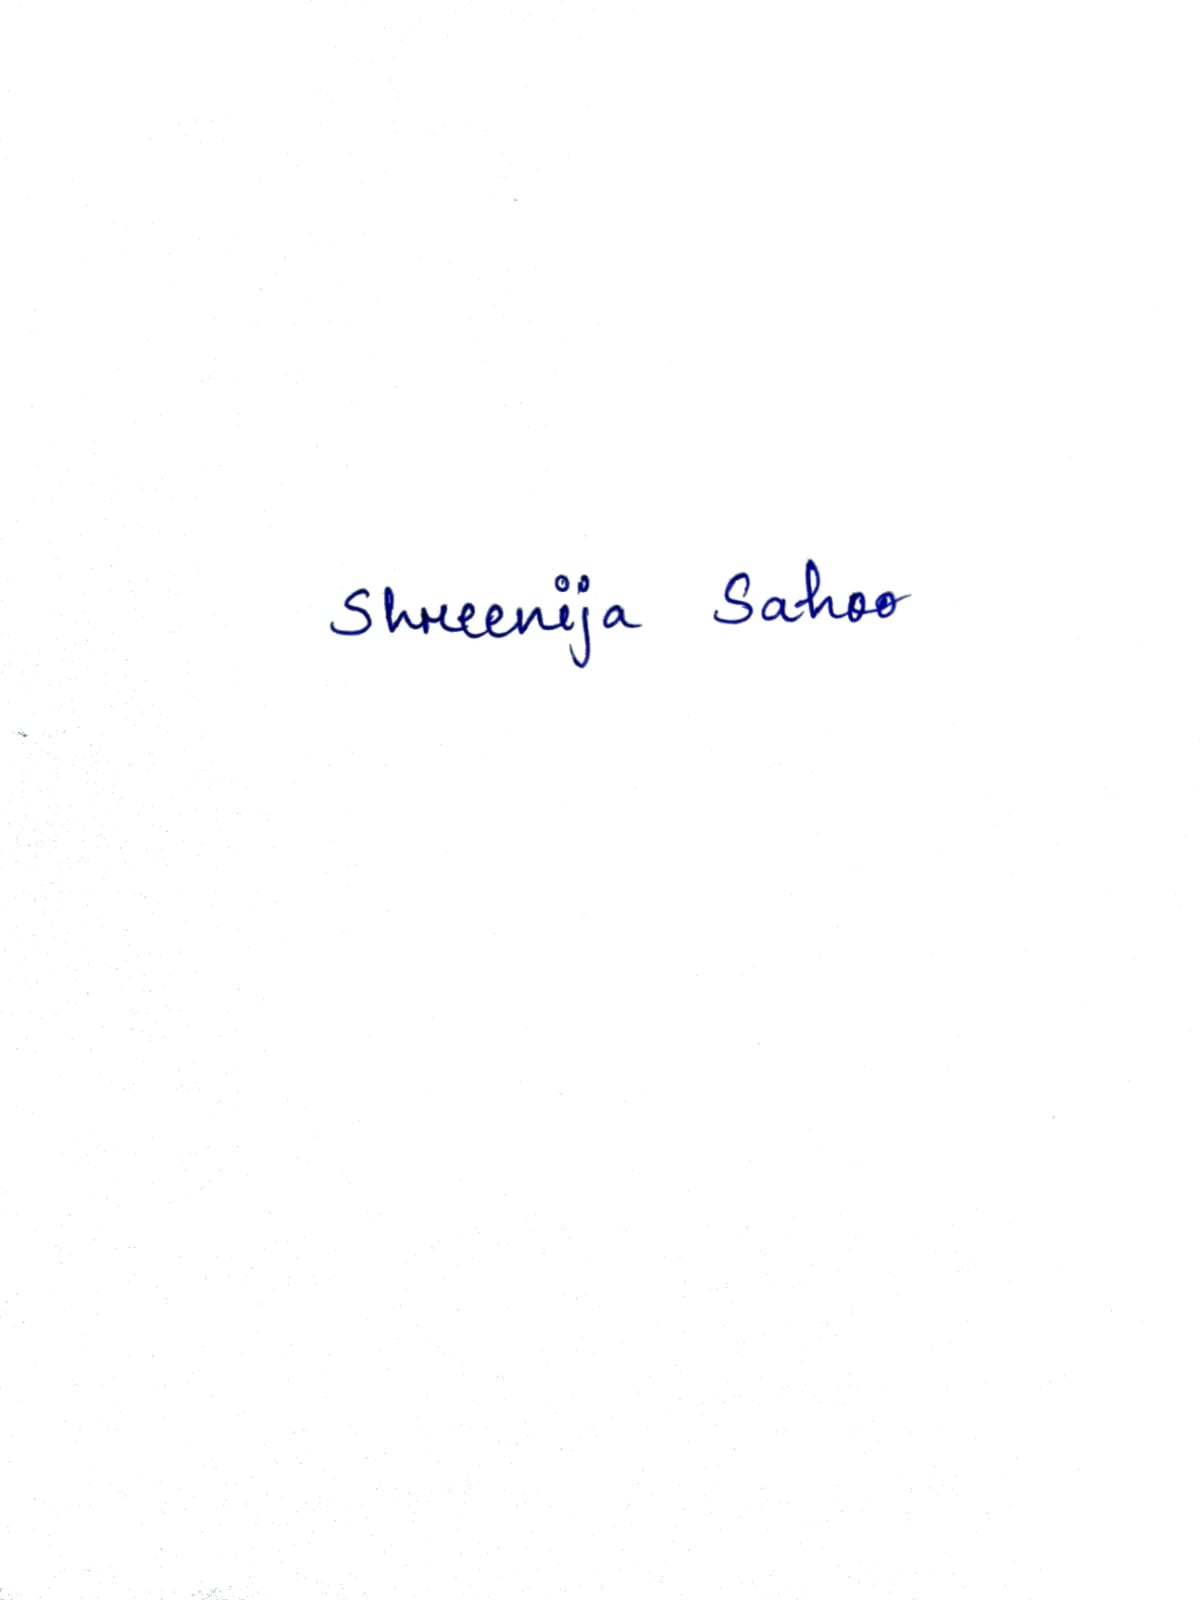 Shreenija Sahoo